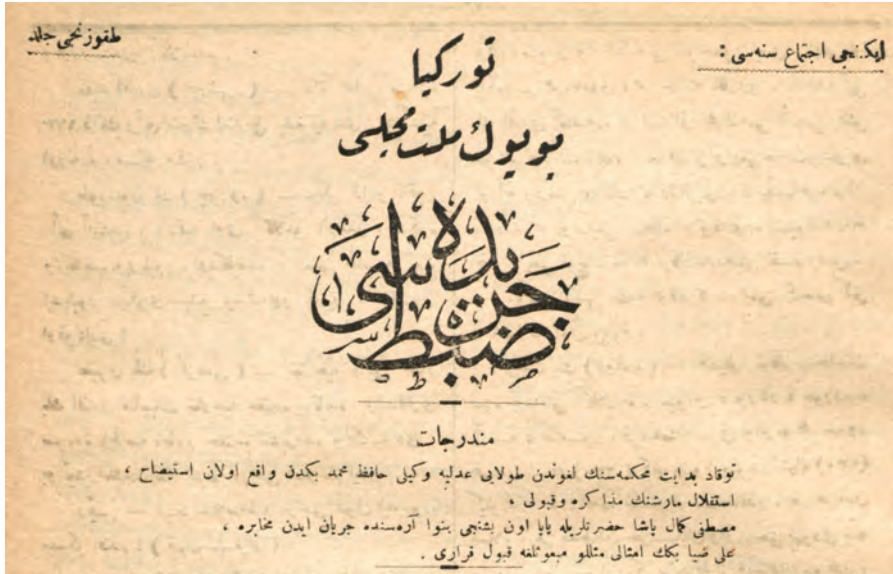 ایکنجی اجتماع سنه‌سی :
طقوزنجی جلد
تورکیا
بویوك ملت مجلسی
ضبط جریده‌سی
مندرجات
توقاد بدایت محکمه‌سنك لغوندن طولایی عدلیه وکیلی حافظ محمد بکدن واقع اولان استیضاح ،
استقلال مارشنك مذاکره وقبولی ،
مصطفی کمال پاشا حضرتلریله پاپا اون بشنجی بنوا آره‌سنده جریان ایدن مخابره ،
علی ضیا بکك امثالی مثللو مبعوثلغه قبول قراری .